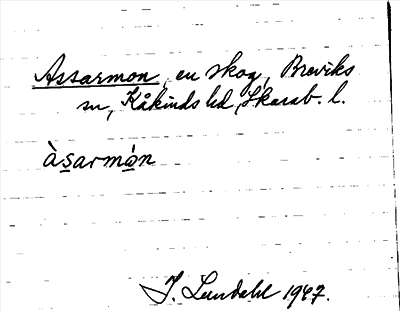 Assarmon, en skog, Breviks
sn, Kåkinds hd, Skarab. l.
àsarmón
I. Lundahl 1947.